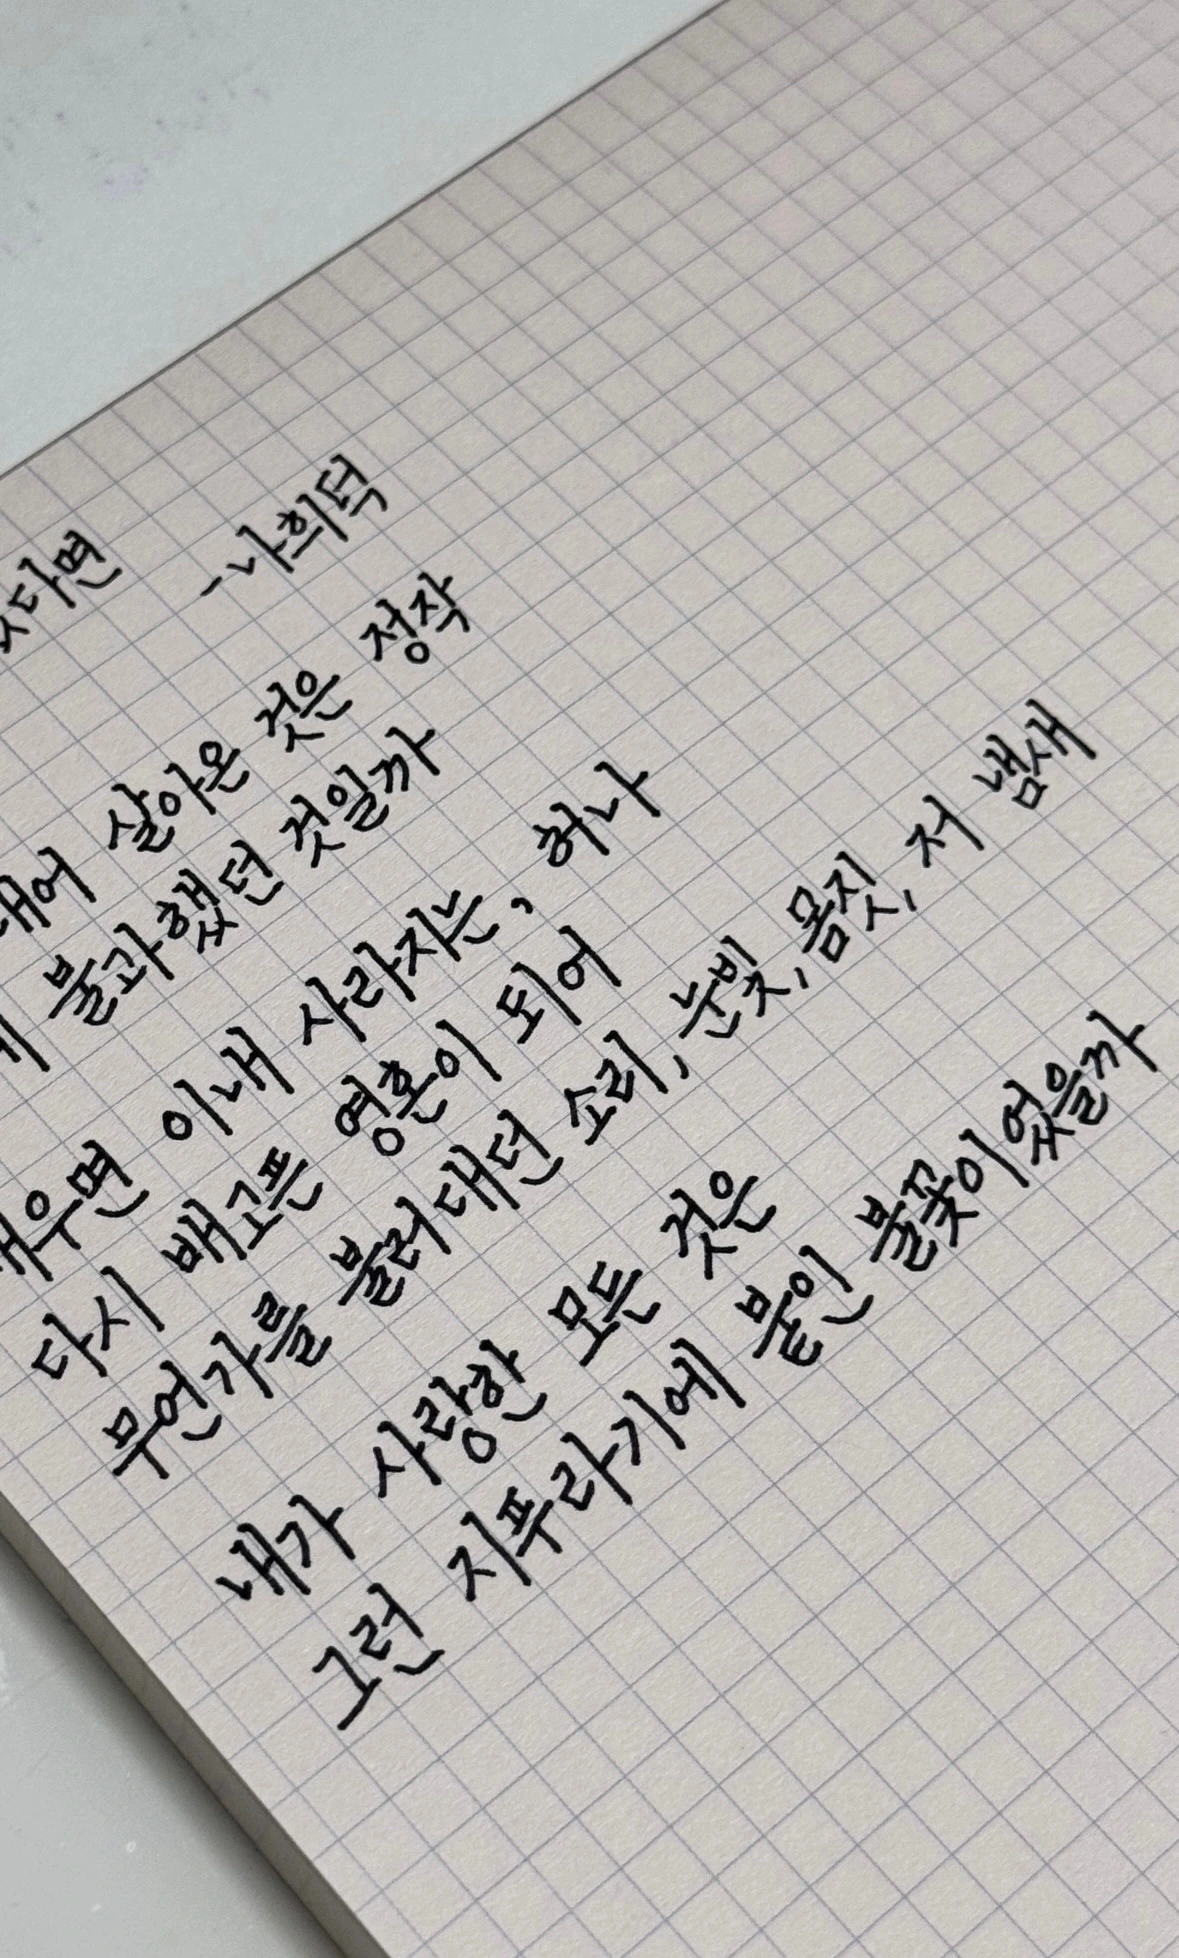 다면 -나희덕
대어 살아온 것은 정작
불과했던 것일까
우면 이내 사라지는, 허나
다시 배고픈 영혼이 되어
무언가를 불러대던 소리, 눈빛, 몸짓, 저 냄새
내가 사랑한 모든 것은
그런 지푸라기에 붙인 불꽃이었을까